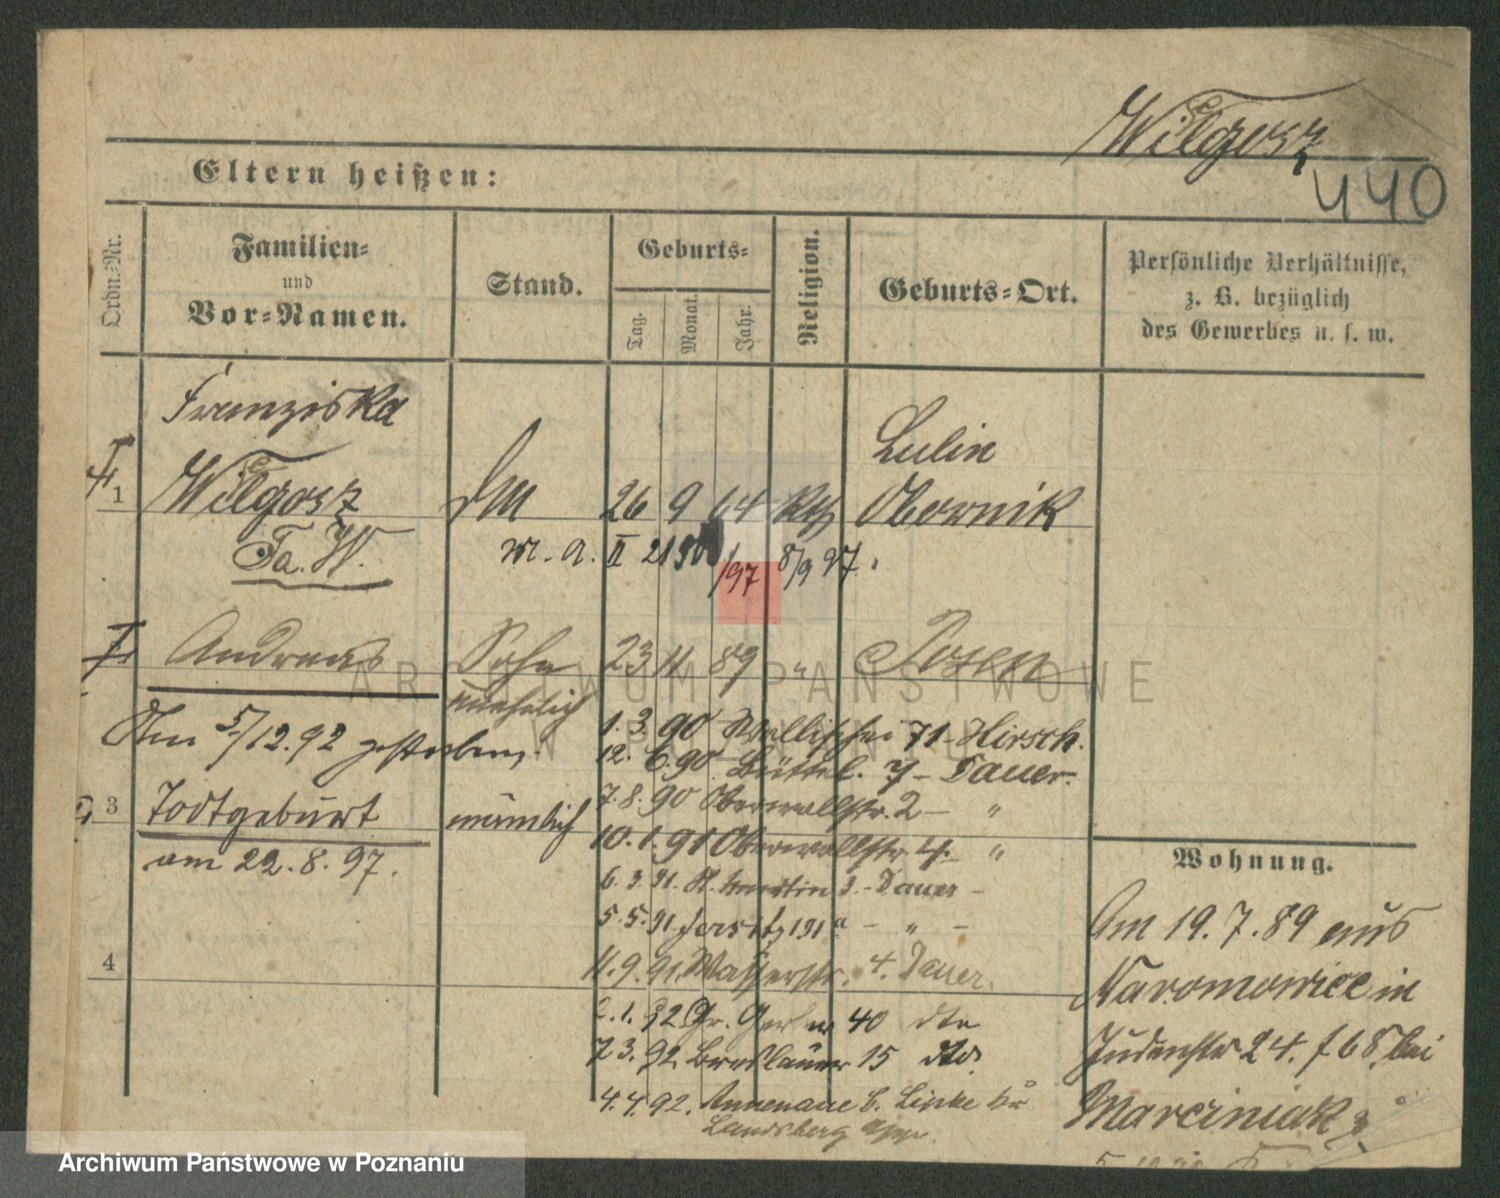 Wilgosz
440
Eltern heißen:
Ordn.-Nr.
Familien-
und
Vor-Namen.
Stand.
Geburts-
Tag.
Monat.
Jahr.
Religion.
Geburts-Ort.
Persönliche Verhältnisse,
z. B. bezüglich
des Gewerbes u. s. w.
Franziska
1 Wilgosz 26 9 64 Kth
Lulin
Obornik
Fa. W.
m. a. II 21 /97 8/9 97.
Andreas Sohn 23 11 89 " Posen
unehelich
Am 5/12.92 gestorben.
1. 3. 90 Wallischei 71 - Hirsch.
12. 6. 90 Büttel. 7 - Dauer.
3 Todtgeburt männlich
am 22. 8. 97.
7. 8. 90 Oberwallstr. 2 - "
10. 1. 91 Oberwallstr. 4. "
6. 3. 91. St. Martin 3. - Dauer -
5. 5. 91 Jersitz 191a - " -
4
11. 9. 91. Wasserstr. 4. Dauer.
2. 1. 92 Gr. Gerber 40 dto
7 3. 92 Breslauer 15 dto.
4. 4. 92. Annenaue b. Lipke Kr
Landsberg
Wohnung.
Am 19. 7. 89 aus
Naramowice in
Judenstr 24. f 68 bei
Marciniak
ARCHIWUM PAŃSTWOWE
W POZNANIU
Archiwum Państwowe w Poznaniu